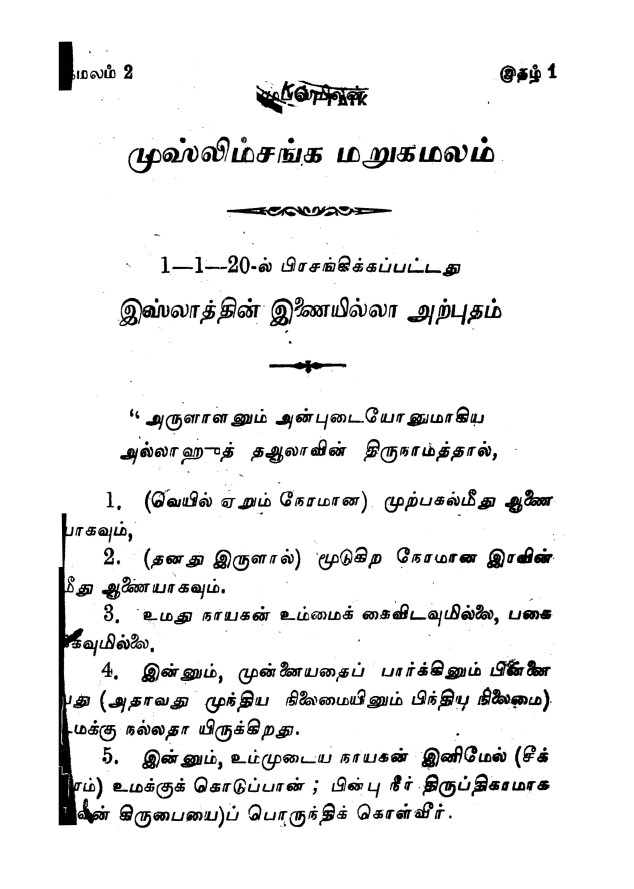 மலம் 2 இதழ் 1
முஸ்லிம்சங்க மறுகமலம்
1—1—20-ல் பிரசங்கிக்கப்பட்டது
இஸ்லாத்தின் இணையில்லா அற்புதம்
“ அருளாளனும் அன்புடையோனுமாகிய
அல்லாஹுத் தஆலாவின் திருநாமத்தால்,
1. (வெயில் ஏறும் நேரமான) முற்பகல்மீது ஆணை
யாகவும்,
2. (தனது இருளால்) மூடுகிற நேரமான இரவின்
மீது ஆணையாகவும்.
3. உமது நாயகன் உம்மைக் கைவிடவுமில்லை, பகை
கவுமில்லை.
4. இன்னும், முன்னையதைப் பார்க்கினும் பின்னை
யது (அதாவது முந்திய நிலைமையினும் பிந்திய நிலைமை)
உமக்கு நல்லதா யிருக்கிறது.
5. இன்னும், உம்முடைய நாயகன் இனிமேல் (சீக்
ரம்) உமக்குக் கொடுப்பான் ; பின்பு நீர் திருப்திகரமாக
கிருபையை)ப் பொருந்திக் கொள்வீர்.